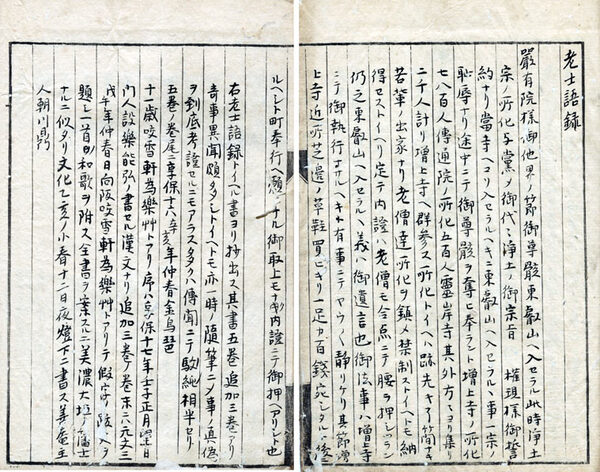 老士語録
嚴有院様御他界ノ節御尊骸東叡山ヘ入セラル此時浄土
宗ノ所化与黨メ御代々浄土ノ御宗旨　権現様御誓
約ナリ當寺ヘコソ入セラルヘキニ東叡山ヘ入セラルヽ事一宗ノ
恥辱ナリ途中ニテ御尊骸ヲ奪ヒ奉ラント増上寺ノ所化
七八百人傳通院ノ所化五百人霊岸寺其外方々ヨリ集リ
二千人計リ増上寺ヘ群参ス所化トイヘハ跡先キナシノ
若輩ノ出家ナリ老僧達所化ヲ鎮メ禁制ストイヘトモ納
得セストイヘリ定テ内證ハ老僧モ合点ニテ腰ヲ押シツラン
仍之東叡山ヘ入セラルヽ義ハ御遺言也御法事ハ増上寺
ニテ御執行ナサルヘキト有事ニテヤウヤク静リケリ其節増
上寺近所芝邊ノ草鞋買ヒキリ一足カ百錢宛シタル
ルヘシト町奉行ヘ願ヒナル御取上モナク内證ニテ御押ヘアリシト也
右老士語録トイヘル書ヨリ抄出ス其書五巻追加三巻アリ
奇事異聞頗タシトイヘトモ亦一時ノ随筆ニノ事ノ真偽
ヲ到底考證セルニモアラスタヽ傳聞ニテ駁純相半セリ
五巻ノ巻尾ニ享保十八年癸亥年仲春金烏
十一歳咬雪軒為樂艸トアリ序ハ享保十七年壬子正月望日
門人設樂能弘ノ書セル漢文ナリ追加三巻ノ巻末ニハ元文三
戊午年仲春日向阪咬雪軒為樂艸トアリテ假字ノ跋ヲ入
題シ一首ノ和歌ヲ附ス全書ヲ案スルニ美濃大垣ノ藩士
ナルニ似タリ文化乙亥ノ小春十二日夜燈下ニ書ス善庵主
人朝川鼎